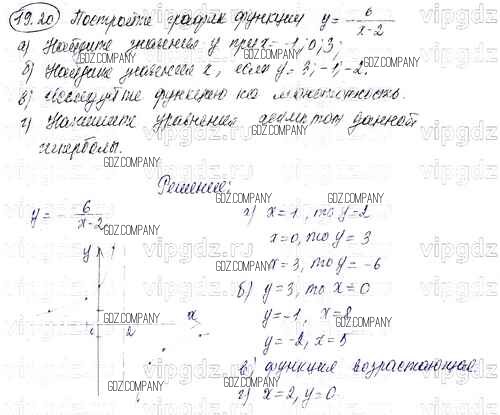 19.20 Постройте график функции y = - 6/(x-2)
а) Найдите значения y при x = 1; 0; 3;
б) Найдите значения x, если y = 3; -1; -2.
в) Исследуйте функцию на монотонность.
г) Напишите уравнения асимптот данной
гиперболы.
Решение:
y = - 6/(x-2)
а) x = 1, то y = 2
x = 0, то y = 3
x = 3, то y = -6
б) y = 3, то x = 0
y = -1, x = 8
y = -2, x = 5
в) функция возрастающая
г) x = 2, y = 0
y
x
0
2
GDZ.COMPANY
vipgdz.ru